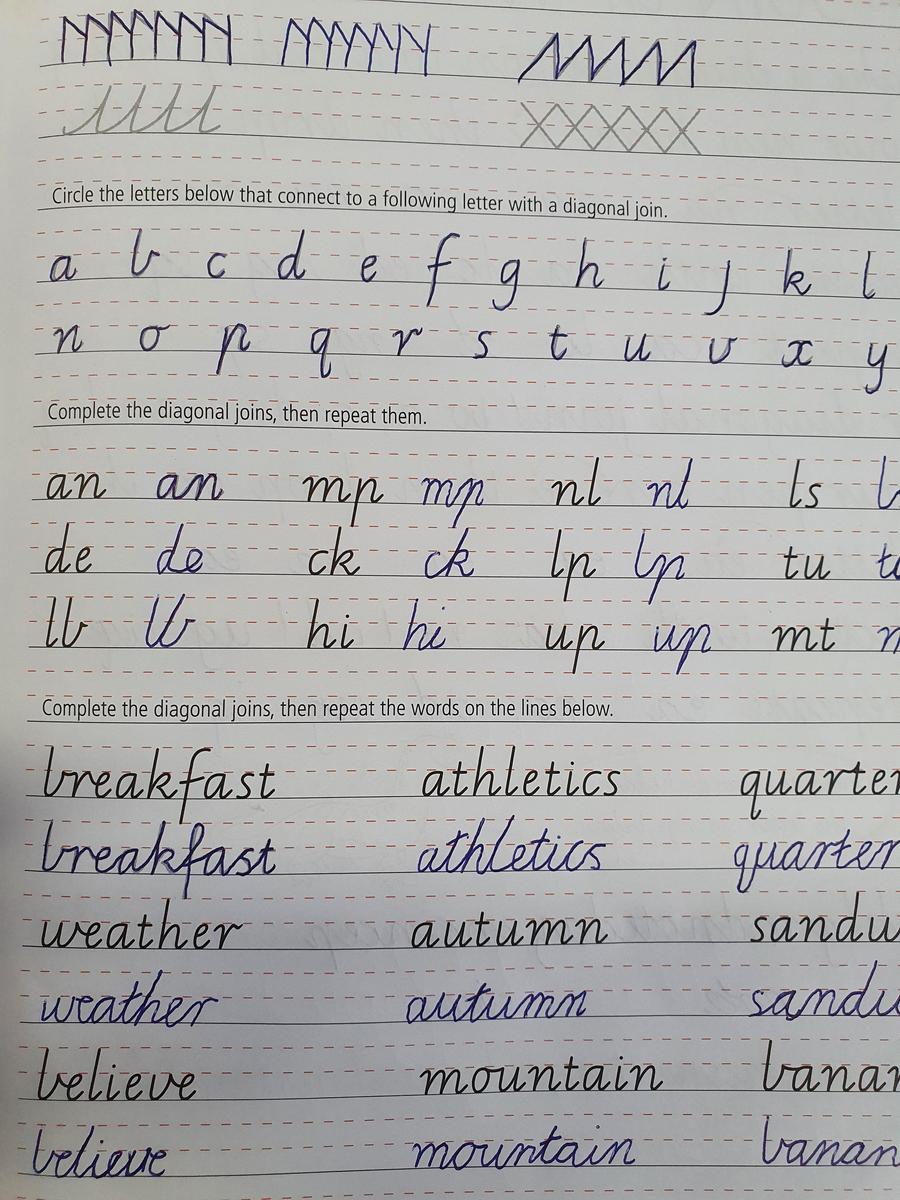 Circle the letters below that connect to a following letter with a diagonal join.
a b c d e f g h i j k l
n o p q r s t u v x y
Complete the diagonal joins, then repeat them.
an an mp mp nl nl ls
de de ck ck lp lp tu
lb lb hi hi up up mt
Complete the diagonal joins, then repeat the words on the lines below.
breakfast athletics quarter
breakfast athletics quarter
weather autumn
weather autumn
believe mountain
believe mountain